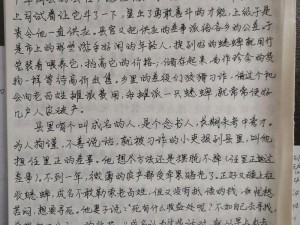 上司试着让它斗了一下，显出了勇敢善斗的才能，上级于是
责令他一直供应。县官又把供应的差事派给各乡的公差。于
是市上的那些游手好闲的年轻人，捉到好的蟋蟀就用竹
笼装着喂养它，抬高它的价格，储存起来，当作珍奇的货
物一样等待高价出售。乡里的差役们狡猾刁诈，借这个机
会向老百姓摊派费用，每摊派一只蟋蟀，就常常使好
几户人家破产。
县里有个叫成名的人，是个念书人，长期未考中秀才。
为人拘谨，不善说话，就被刁诈的小吏报到县里，叫他
担任里正的差事。他想尽方法还是摆脱不掉（任里正这
差事）。不到一年，微薄的家产都受牵累赔光了。正好又碰上征
收蟋蟀，成名不敢勒索老百姓，但又没有抵偿的钱，忧愁
苦闷，想要寻死。他妻子说：“死有什么益处呢？不如自己去寻找，